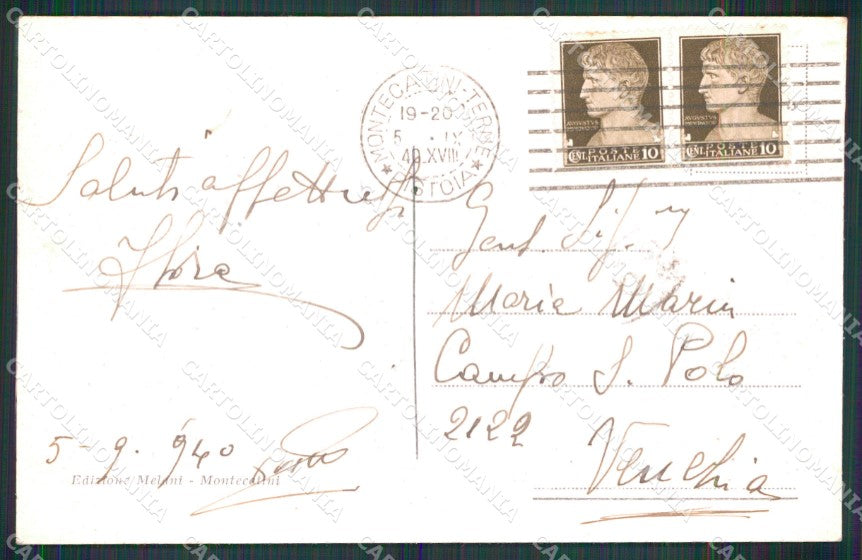 Saluti affettuosi
Flora
5-9. 940
Edizione Melani - Montecatini
MONTECATINI-TERME
19-20
5 . IX
40.XVIII
★ PISTOIA ★
AUGUSTVS
POSTE
CENT. ITALIANE 10
AUGUSTVS
POSTE
CENT. ITALIANE 10
Gent. Sig.
Maria Marin
Campo S. Polo
2122
Venezia
CARTOLINOMANIA